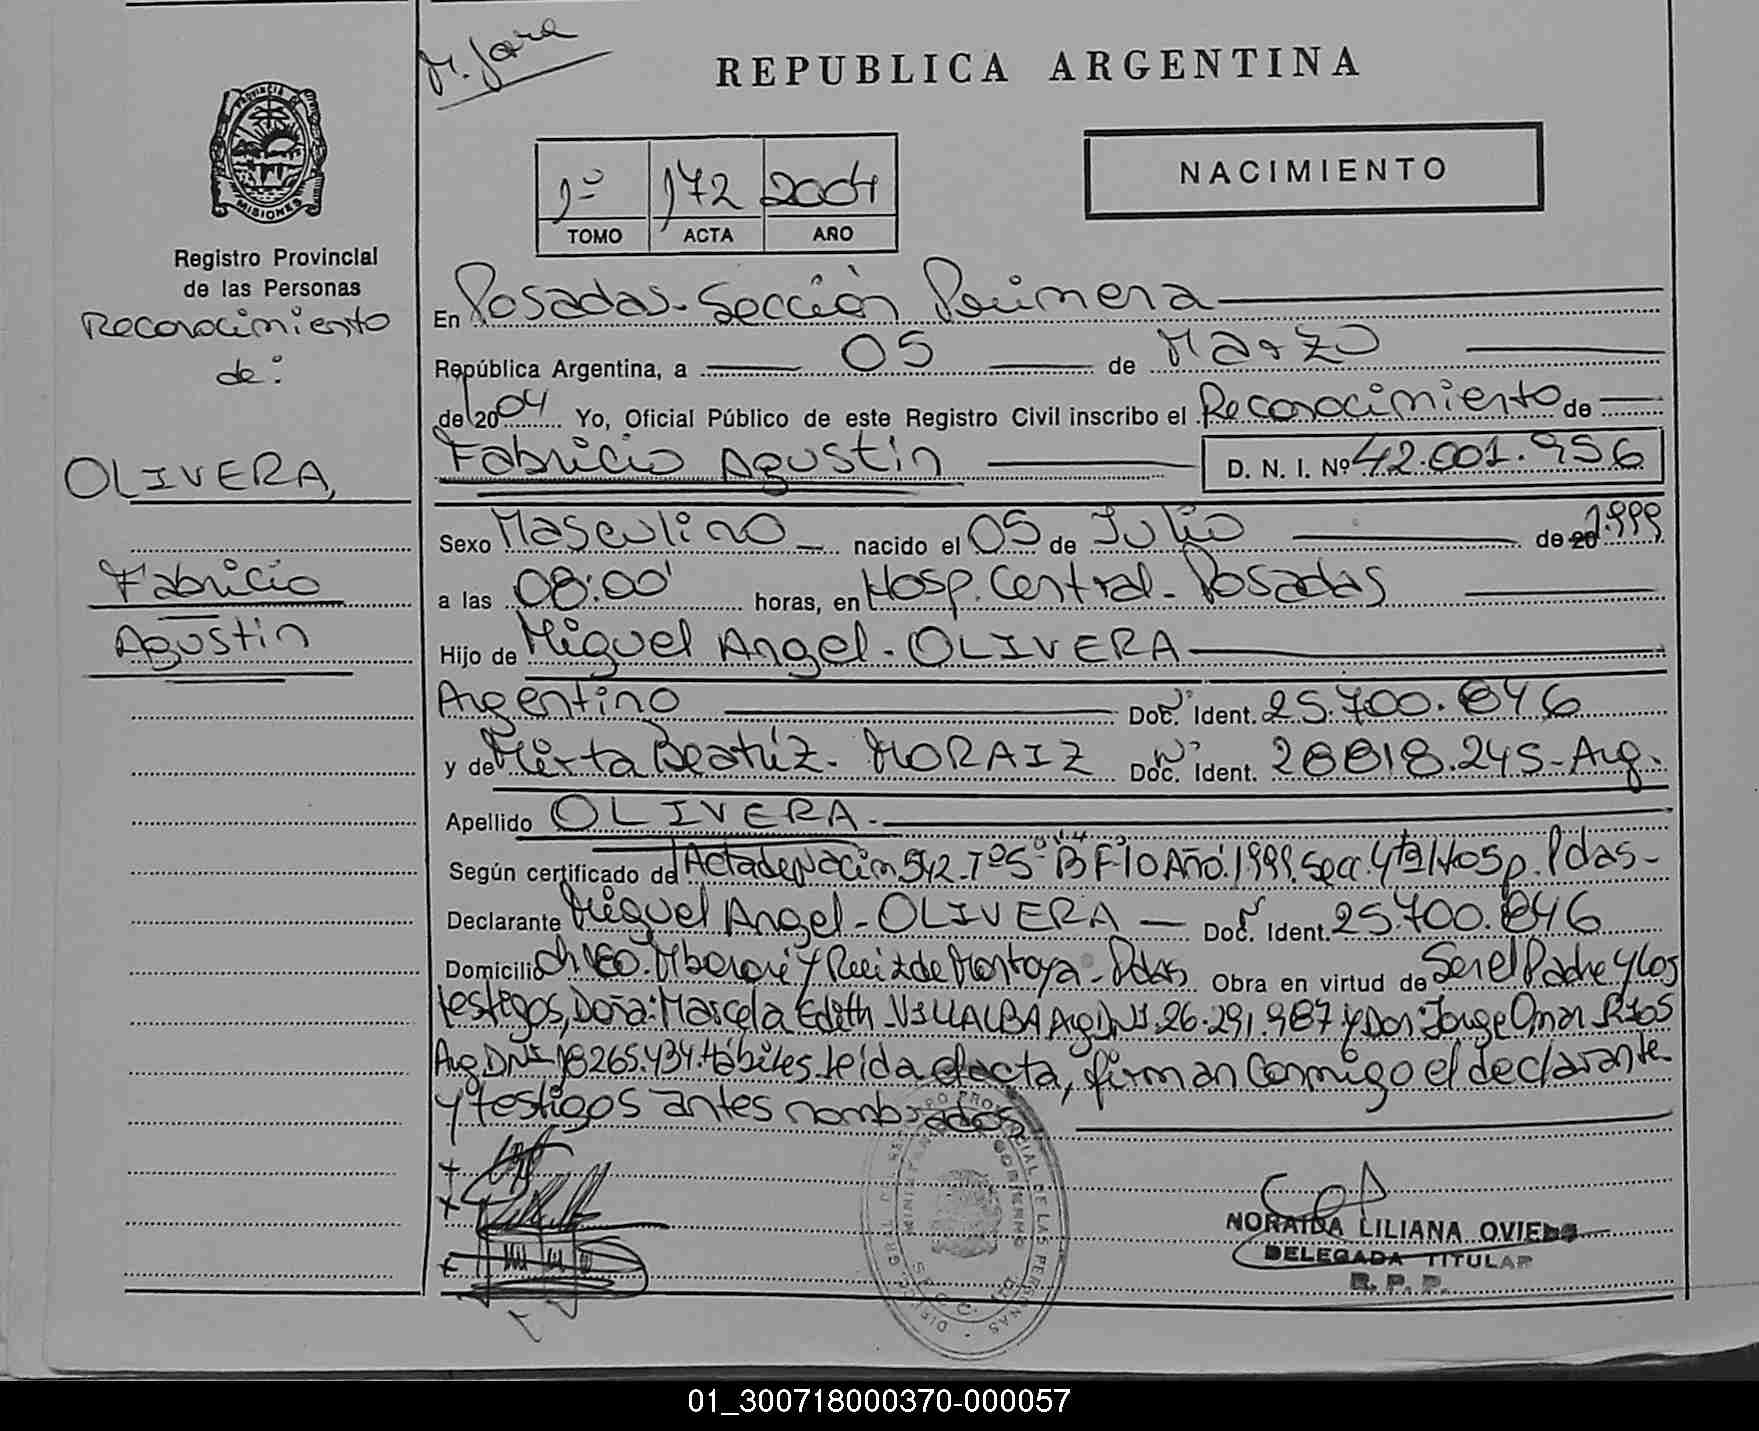 M. Jara
REPUBLICA ARGENTINA
PROVINCIA DE
MISIONES
Registro Provincial
de las Personas
Reconocimiento
de:
OLIVERA,
Fabricio
Agustin
1º 172 2004
TOMO ACTA AÑO
NACIMIENTO
En Posadas-Sección Primera
República Argentina, a 05 de Marzo
de 2004 Yo, Oficial Público de este Registro Civil inscribo el Reconocimiento de
Fabricio Agustin D. N. I. Nº 42.001.956
Sexo Masculino nacido el 05 de Julio de 20 1.999
a las 08:00' horas, en Hosp. Central-Posadas
Hijo de Miguel Angel-OLIVERA
Argentino Doc. Nº Ident. 25.700.846
y de Mirta Beatríz-MORAIZ Doc. Nº Ident. 28818.245-Arg.
Apellido OLIVERA-
Según certificado de Acta de Nación 542-Tº5º "B" Fº10 Año:1.999. Secc. 4ta Hosp. Pdas-
Declarante Miguel Angel-OLIVERA Doc. Nº Ident. 25.700.846
Domicilio y Ruiz de Montoya-Pdas Obra en virtud de Ser el Padre y los
testigos, Doña: Marcela Edith-VILLALBA Arg. DNI. 26.291.987 y Don: Jorge Omar RIOS
Arg DNI-18265.434. Hábiles. leída el acta, firman conmigo el declarante
y testigos antes nombrados
NORAIDA LILIANA OVIEDO
DELEGADA TITULAR
R. P. P.
01_300718000370-000057